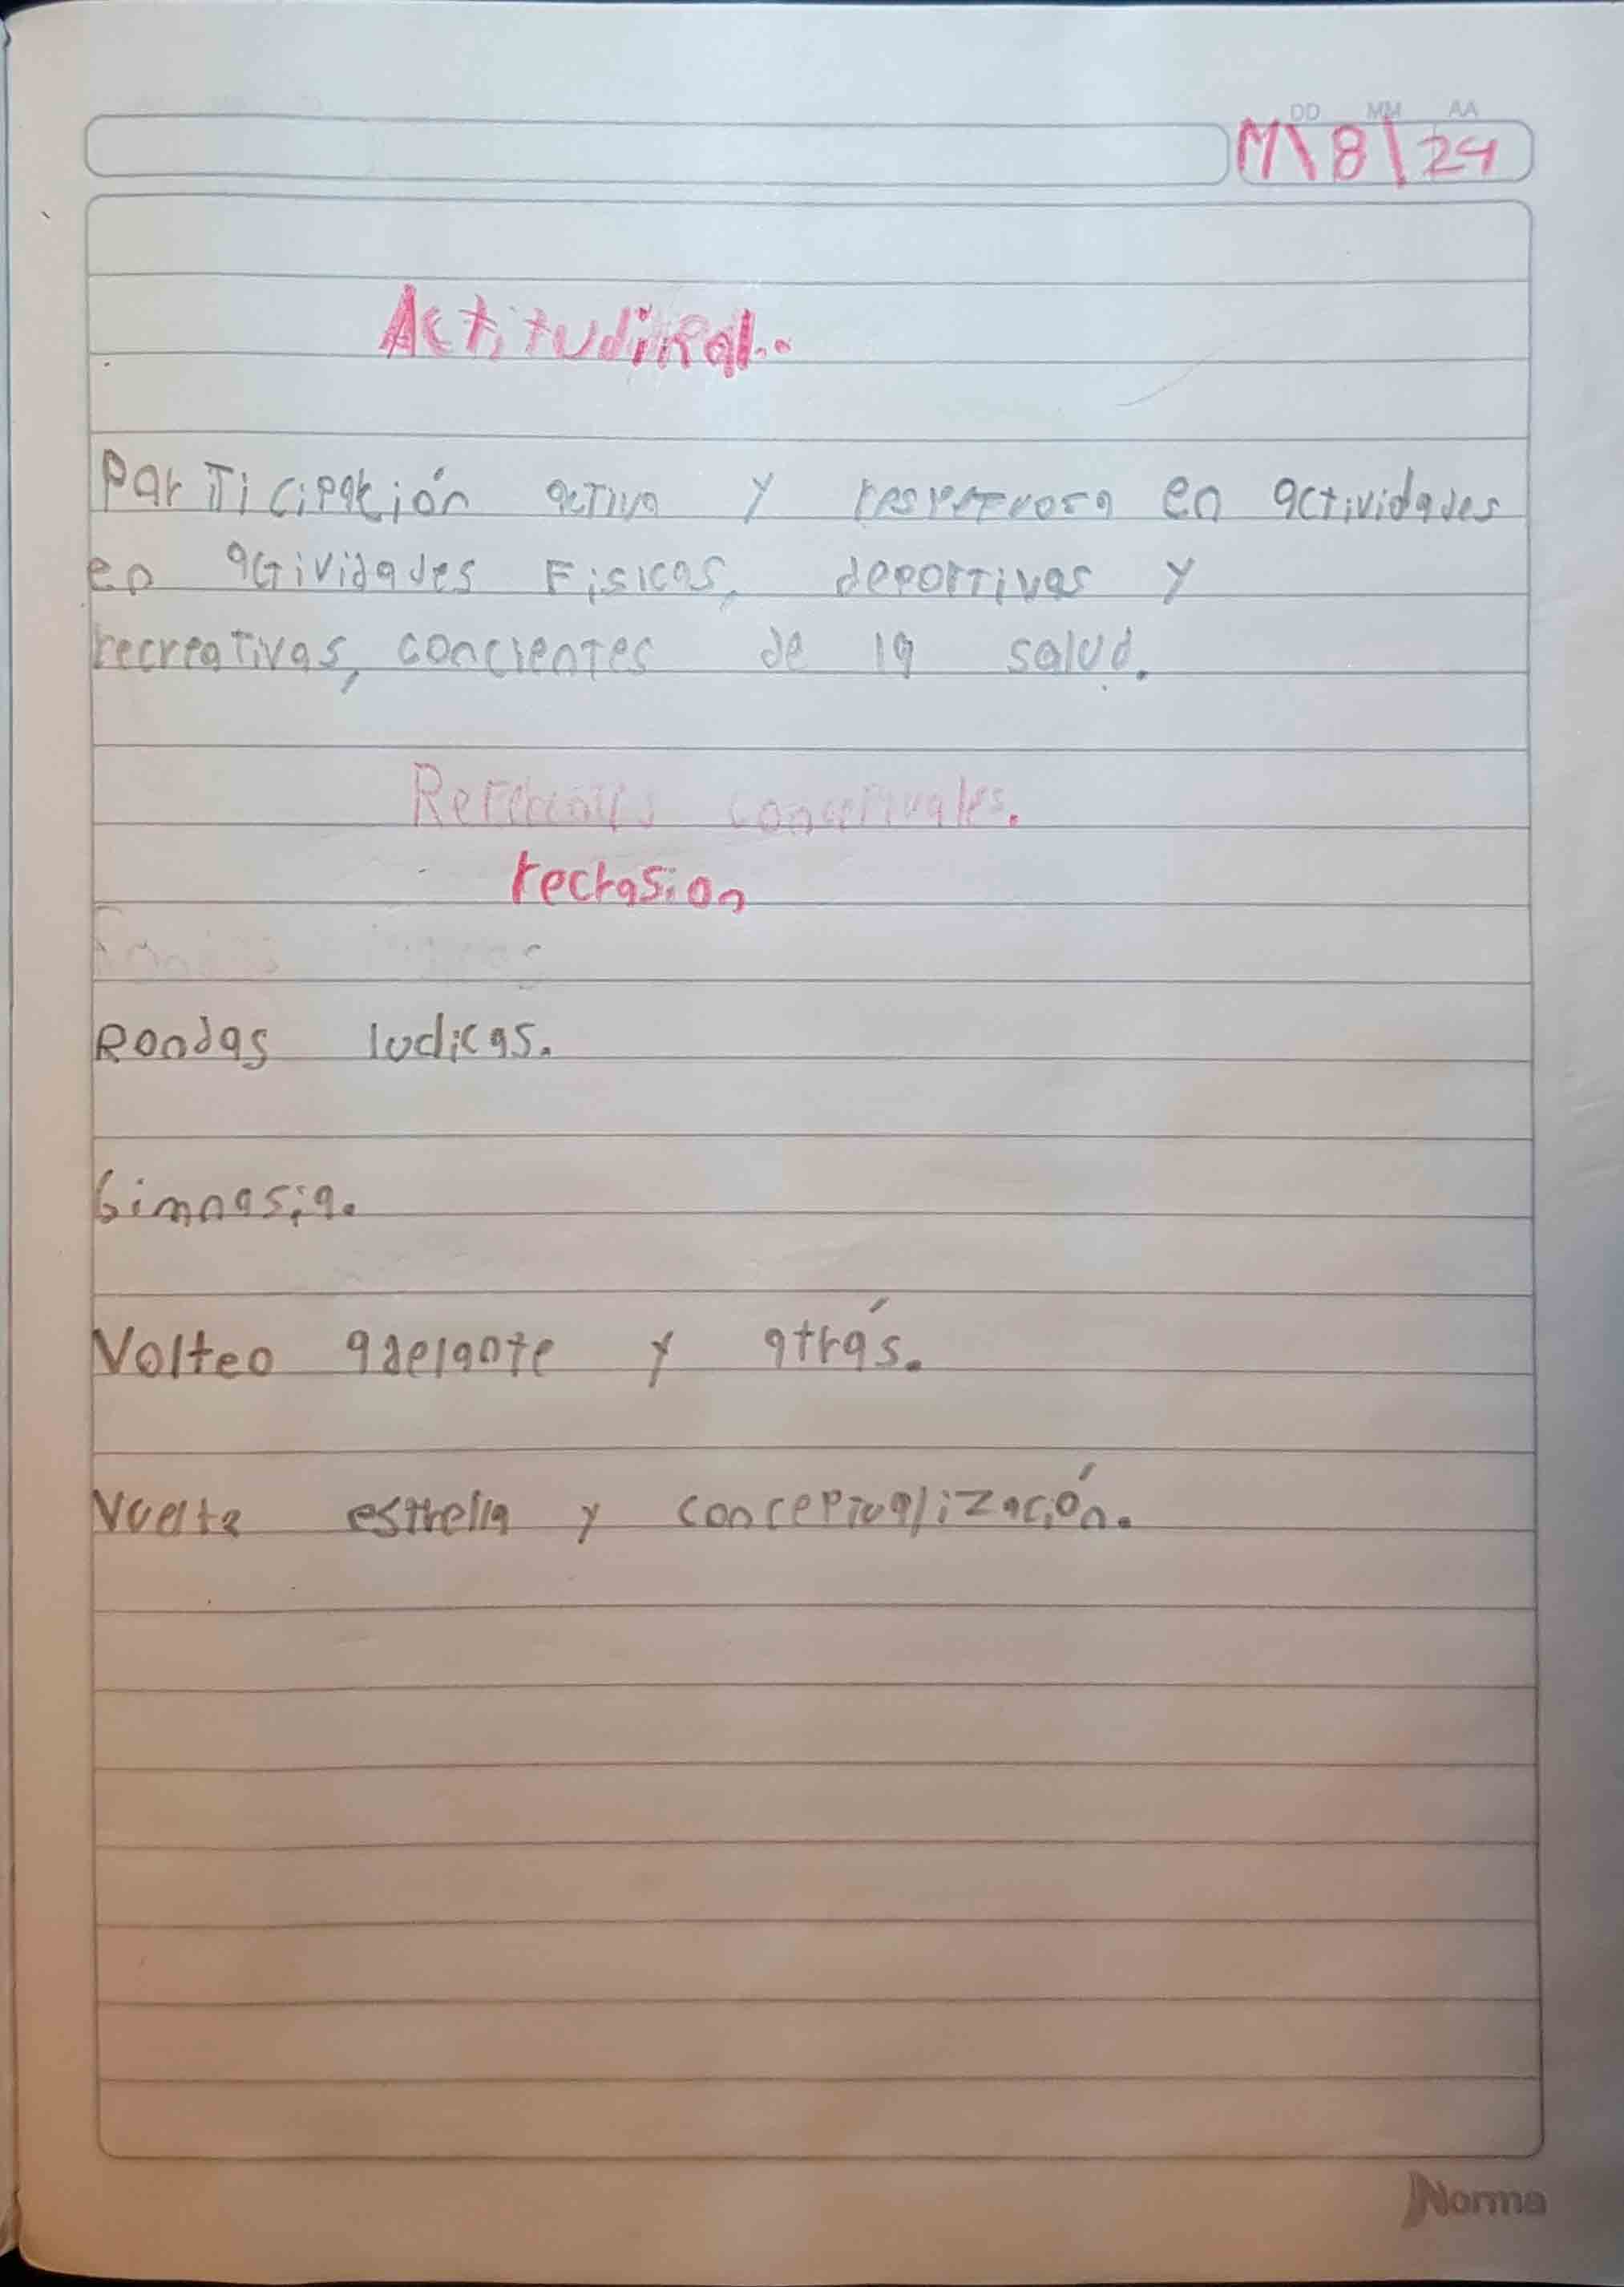 DD MM AA
M\8\24
Actitudinal..
Participación activa y respetuosa en actividades
en actividades Fisicas, deportivas y
recreativas, concientes de la salud.
Referentes conceptuales.
recrasion
Rondas ludicas.
Gimnasia.
Volteo adelante y atrás.
Vuelta estrella y conceptualización.
Norma